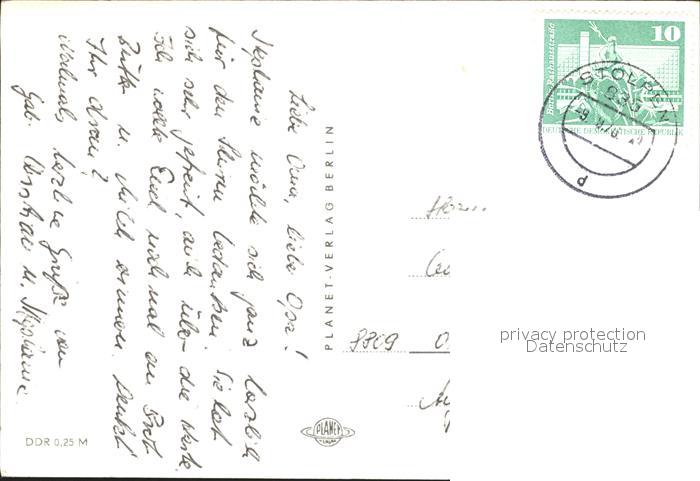 Liebe Oma, liebe Opa!
Stephanie möchte sich ganz herzlich
für den bedanken. Sie hat
sich sehr gefreut, auch über die Karte.
Ich wollte Euch noch mal an Brot
Butter u. Milch erinnern. Denkt
Ihr dran?
Nochmals herzliche Grüße von
Gab. u. Stephanie
DDR 0,25 M
PLANET-VERLAG BERLIN
PLANET
10
Berlin, Rathausstraße
DEUTSCHE DEMOKRATISCHE REPUBLIK
STOLPEN
8809
privacy protection
Datenschutz